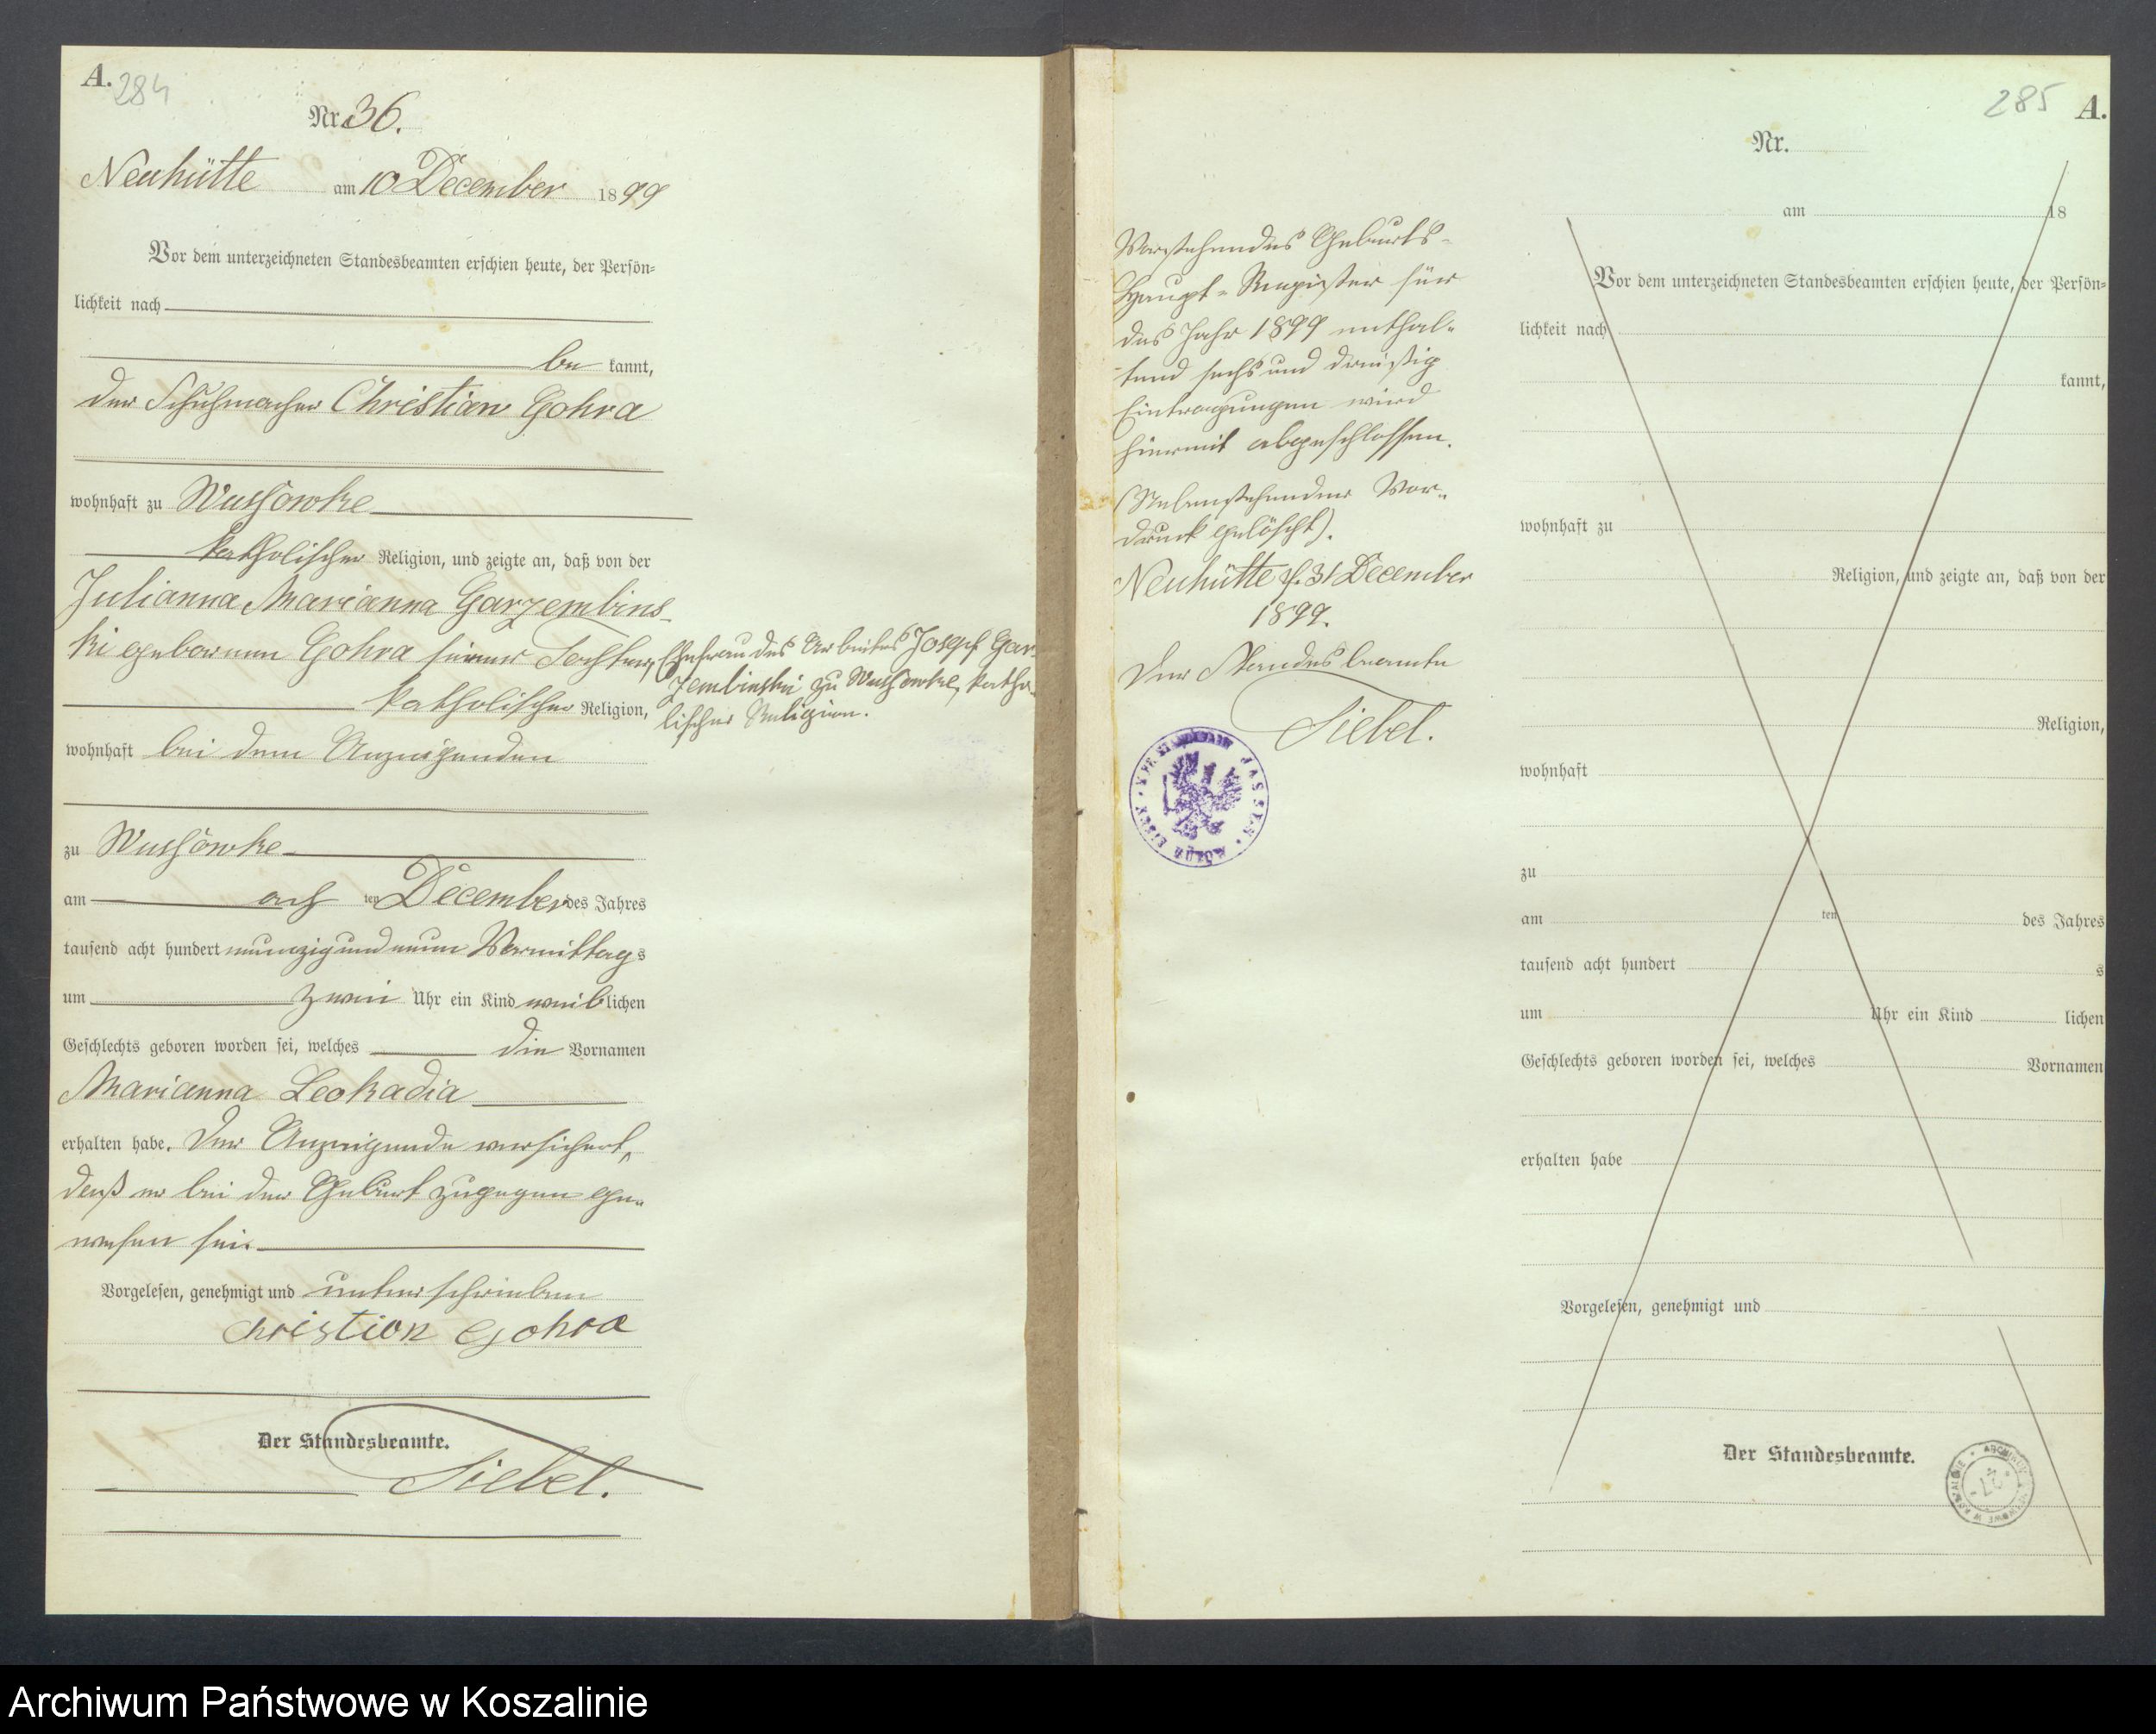 A.
284
Nr. 36.
Neuhütte am 10 December 1899
Vor dem unterzeichneten Standesbeamten erschien heute, der Persön=
lichkeit nach
be kannt,
der Schuhmacher Christian Gohra
wohnhaft zu Wussowke
katholischer Religion, und zeigte an, daß von der
Julianna Marianna Garzembins-
ki geborenen Gohra seiner Tochter, Ehefrau des Arbeiters Joseph Gar-
zembinski zu Wussowke, katho-
katholischer Religion,
lischer Religion.
wohnhaft bei dem Anzeigenden
zu Wussowke
am acht ten December des Jahres
tausend acht hundert neunzig und neun Vormittags
um zwei Uhr ein Kind weiblichen
Geschlechts geboren worden sei, welches die Vornamen
Marianna Leokadia
erhalten habe. Der Anzeigende versichert,
daß er bei der Geburt zugegen ge=
wesen sei.
Vorgelesen, genehmigt und unterschrieben
Christian Gohra
Der Standesbeamte.
Siebel.
285
A.
Vorstehendes Geburts-
Haupt-Register für
das Jahr 1899 enthal-
tend sechs und dreißig
Eintragungen wird
hiermit abgeschlossen.
(Nebenstehender Vor-
druck gelöscht).
Neuhütte d. 31 December
1899.
Der Standesbeamte
Siebel.
Nr.
am 18
Vor dem unterzeichneten Standesbeamten erschien heute, der Persön=
lichkeit nach
kannt,
wohnhaft zu
Religion, und zeigte an, daß von der
Religion,
wohnhaft
zu
am ten des Jahres
tausend acht hundert s
um Uhr ein Kind lichen
Geschlechts geboren worden sei, welches Vornamen
erhalten habe
Vorgelesen, genehmigt und
Der Standesbeamte.
Archiwum Państwowe w Koszalinie